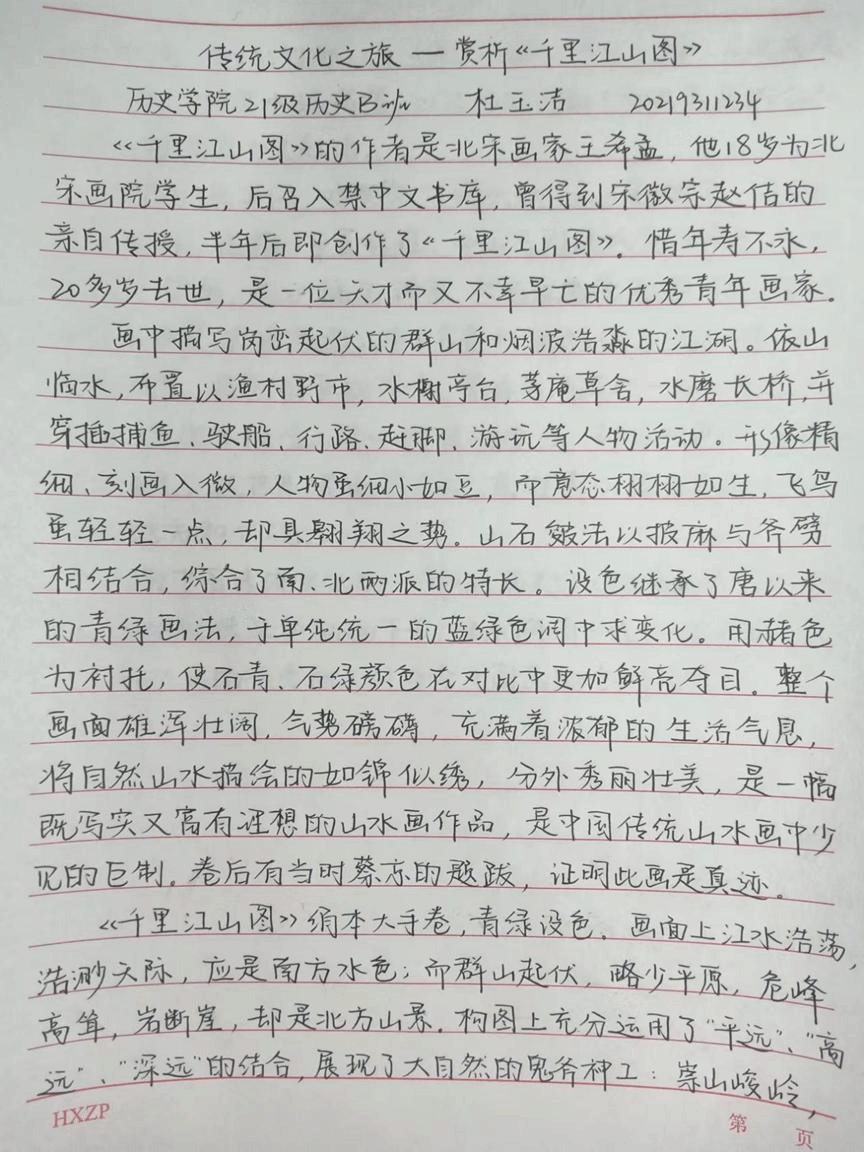 传统文化之旅—赏析《千里江山图》
历史学院21级历史B班 杜玉洁 20219311234
《千里江山图》的作者是北宋画家王希孟，他18岁为北
宋画院学生，后召入禁中文书库，曾得到宋徽宗赵佶的
亲自传授，半年后即创作了《千里江山图》。惜年寿不永，
20多岁去世，是一位天才而又不幸早亡的优秀青年画家。
画中描写岗峦起伏的群山和烟波浩淼的江湖。依山
临水，布置以渔村野市，水榭亭台，茅庵草舍，水磨长桥，并
穿插捕鱼、驶船、行路、赶脚、游玩等人物活动。形像精
细、刻画入微，人物虽细小如豆，而意态栩栩如生，飞鸟
虽轻轻一点，却具翱翔之势。山石皴法以披麻与斧劈
相结合，综合了南、北两派的特长。设色继承了唐以来
的青绿画法，于单纯统一的蓝绿色调中求变化。用赭色
为衬托，使石青、石绿颜色在对比中更加鲜亮夺目。整个
画面雄浑壮阔，气势磅礴，充满着浓郁的生活气息，
将自然山水描绘的如锦似绣，分外秀丽壮美，是一幅
既写实又富有理想的山水画作品，是中国传统山水画中少
见的巨制。卷后有当时蔡京的题跋，证明此画是真迹。
《千里江山图》绢本大手卷，青绿设色。画面上江水浩荡，
浩渺天际，应是南方水色；而群山起伏，略少平原，危峰
高耸，岩断崖，却是北方山景。构图上充分运用了“平远”、“高
远”、“深远”的结合，展现了大自然的鬼斧神工：崇山峻岭，
HXZP
第 页